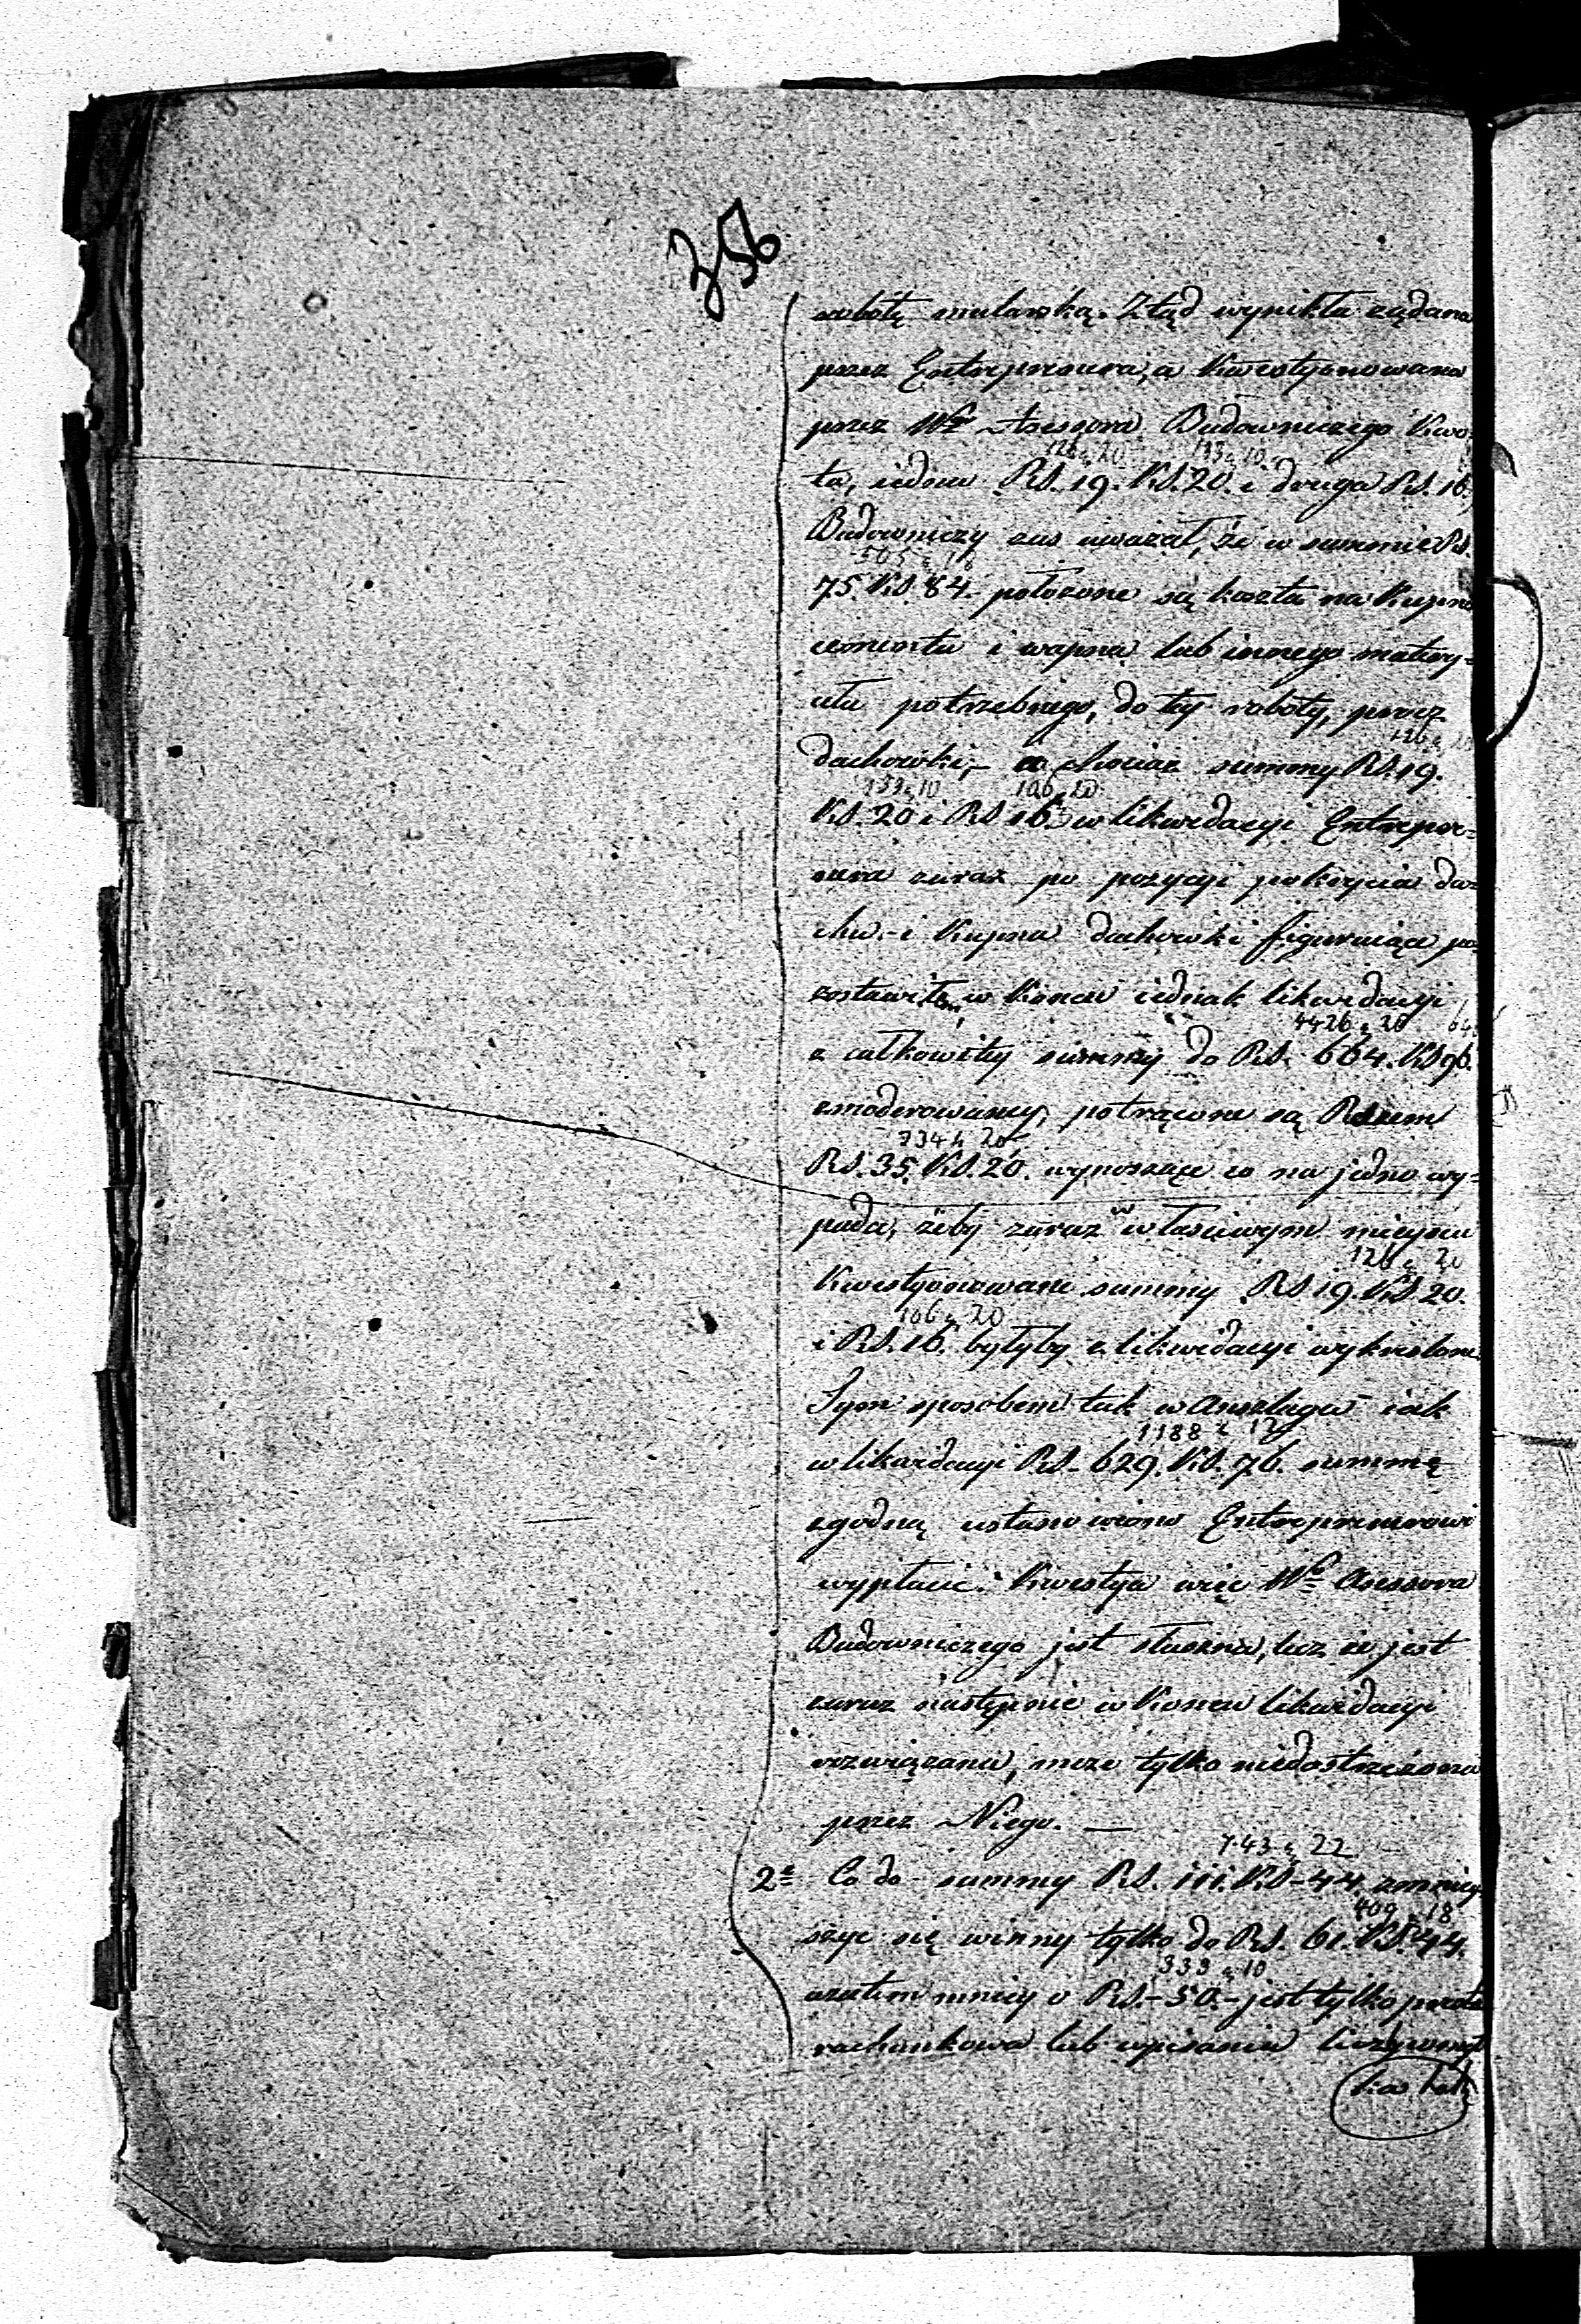 356
robotę mularską. Ztąd wynikła żądana
przez Entreprenera, a Kwestyonowana
przez Wgo Assessora Budowniczego Kwo-
126 20 133 10
ta, iedna RS. 19. KS. 20. i druga RS. 16.
Budowniczy zaś uważał, że w summie RS.
505 18
75. KS. 84. położone są koszta na Kupno
cementu i wapna lub innego matery-
ału potrzebnego, do tey roboty, prócz
126 20
dachówki,- a chociaż summy RS. 19.
133 10 106 20
KS. 20 i RS 16. w likwidacyi Entrepre-
nera zaraz po pozycyi pokrycia da-
chu.- i Kupna dachówki figuruiące po-
zostawiłem, w Końcu iednak likwidacyi
4426 20
z całkowitey summy do RS. 664. KS 96.
zmoderowaney, potrącone są Razem
234 20
RS. 35. KS. 20. wynoszące co na jedno wy-
pada, żeby zaraz w właściwym mieyscu
126 20
Kwestyonowane summy RS 19. KS 20.
106 20
i RS. 16. byłyby z likwidacyi wykreślone.
Tym sposobem tak w Anszlagu iak
1188 12
w likwidacyi RS. 629. KS. 76. summę
zgodną ustanowiono Entreprenerowi
wypłacić. Kwestya więc Wgo Assessora
Budowniczego jest słuszna, lecz że jest
zaraz następnie w Koncu likwidacyi
rozwiązana, może tylko niedostrzeżona
przez Niego. —
743 22
2e Co do summy RS. 111. KS - 44. zmniey-
409 18
szyć się winny tylko do RS. 61. KS. 44.
333 10
azatem mniey o RS. - 50. - jest tylko
rachunkowa lub wpisania